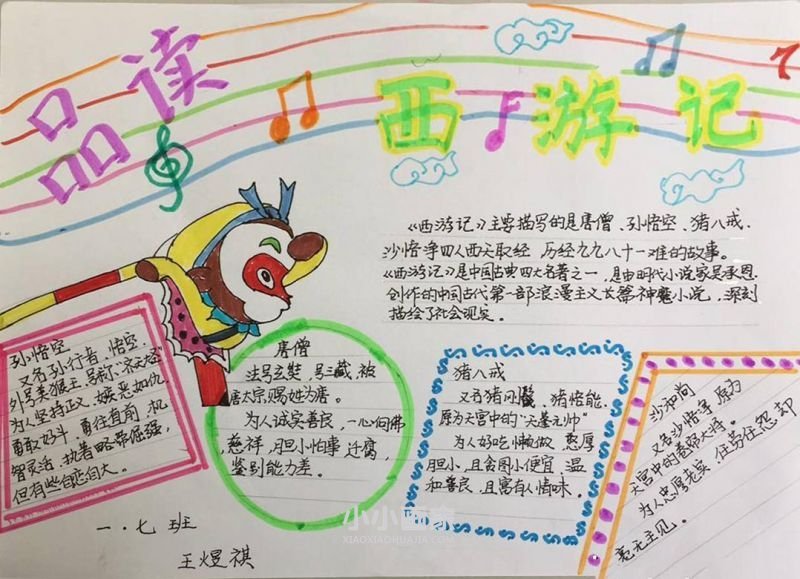 品读
西游记
《西游记》主要描写的是唐僧、孙悟空、猪八戒、
沙悟净四人西天取经,历经九九八十一难的故事。
《西游记》是中国古典四大名著之一,是由明代小说家吴承恩
创作的中国古代第一部浪漫主义长篇神魔小说,深刻
描绘了社会现实。
孙悟空
又名孙行者、悟空,
外号美猴王,号称:“齐天大圣”
为人坚持正义、嫉恶如仇,
勇敢好斗、勇往直前、机
智灵活、执着略带倔强,
但有些自恋自大。
唐僧
法号玄奘,号三藏,被
唐太宗赐姓为唐。
为人诚实善良,一心向佛
慈祥,胆小怕事、迂腐,
鉴别能力差。
猪八戒
又名猪刚鬣、猪悟能,
原为天宫中的“天蓬元帅”
为人好吃懒做、憨厚
胆小,且贪图小便宜、温
和善良,且富有人情味。
沙和尚
又名沙悟净,原为
天宫中的卷帘大将。
为人忠厚老实、任劳任怨,却
毫无主见。
一.七班
王煜祺
小小画家
XIAOXIAOHUAJIA.COM